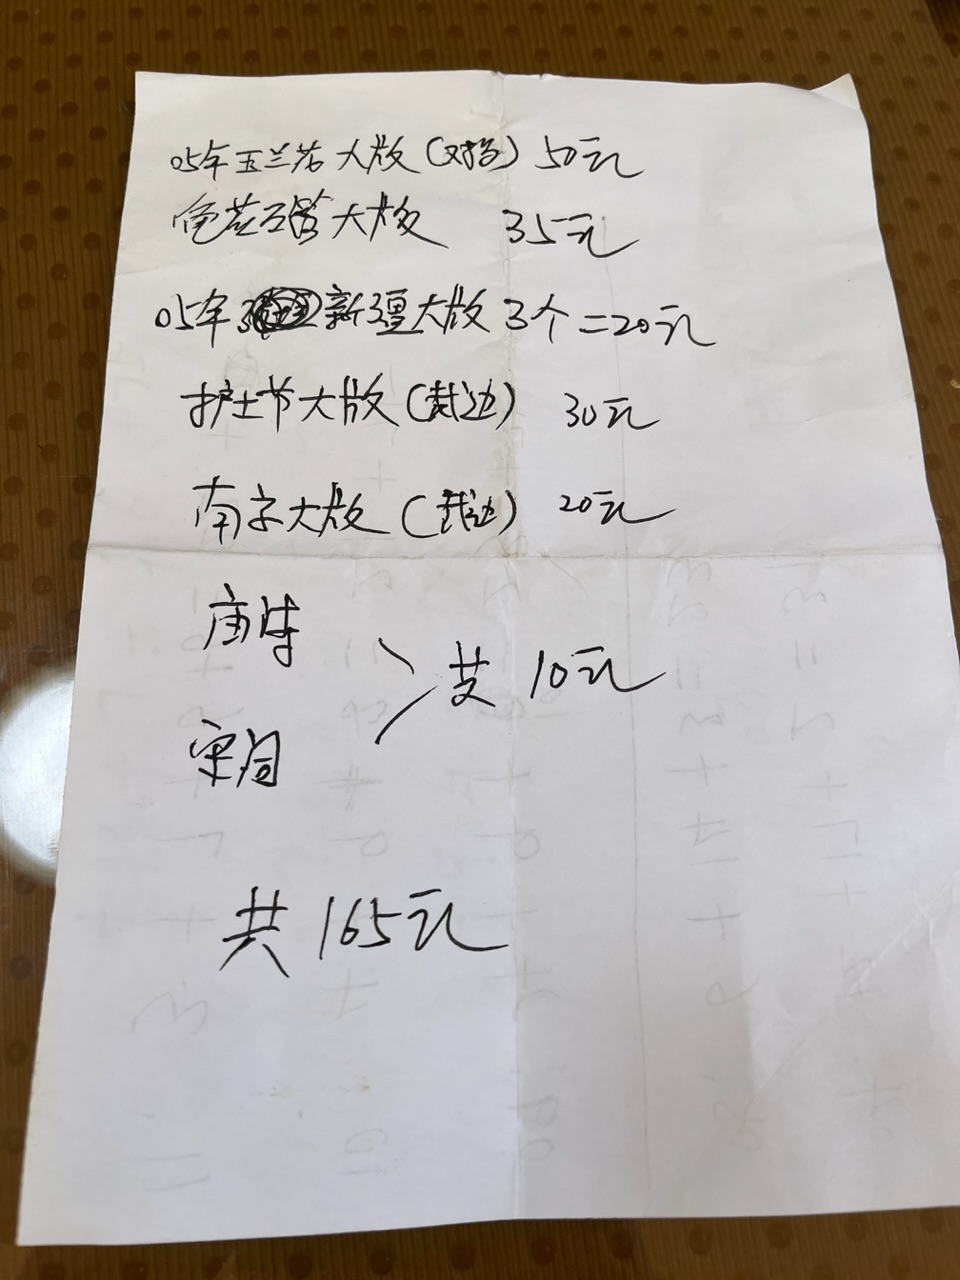 05年玉兰花大版(对折) 50元
大版 35元
05年新疆大版3个=20元
护士节大版(裁边) 30元
南京大版(裁边) 20元
唐诗
共 10元
宋词
共 165元